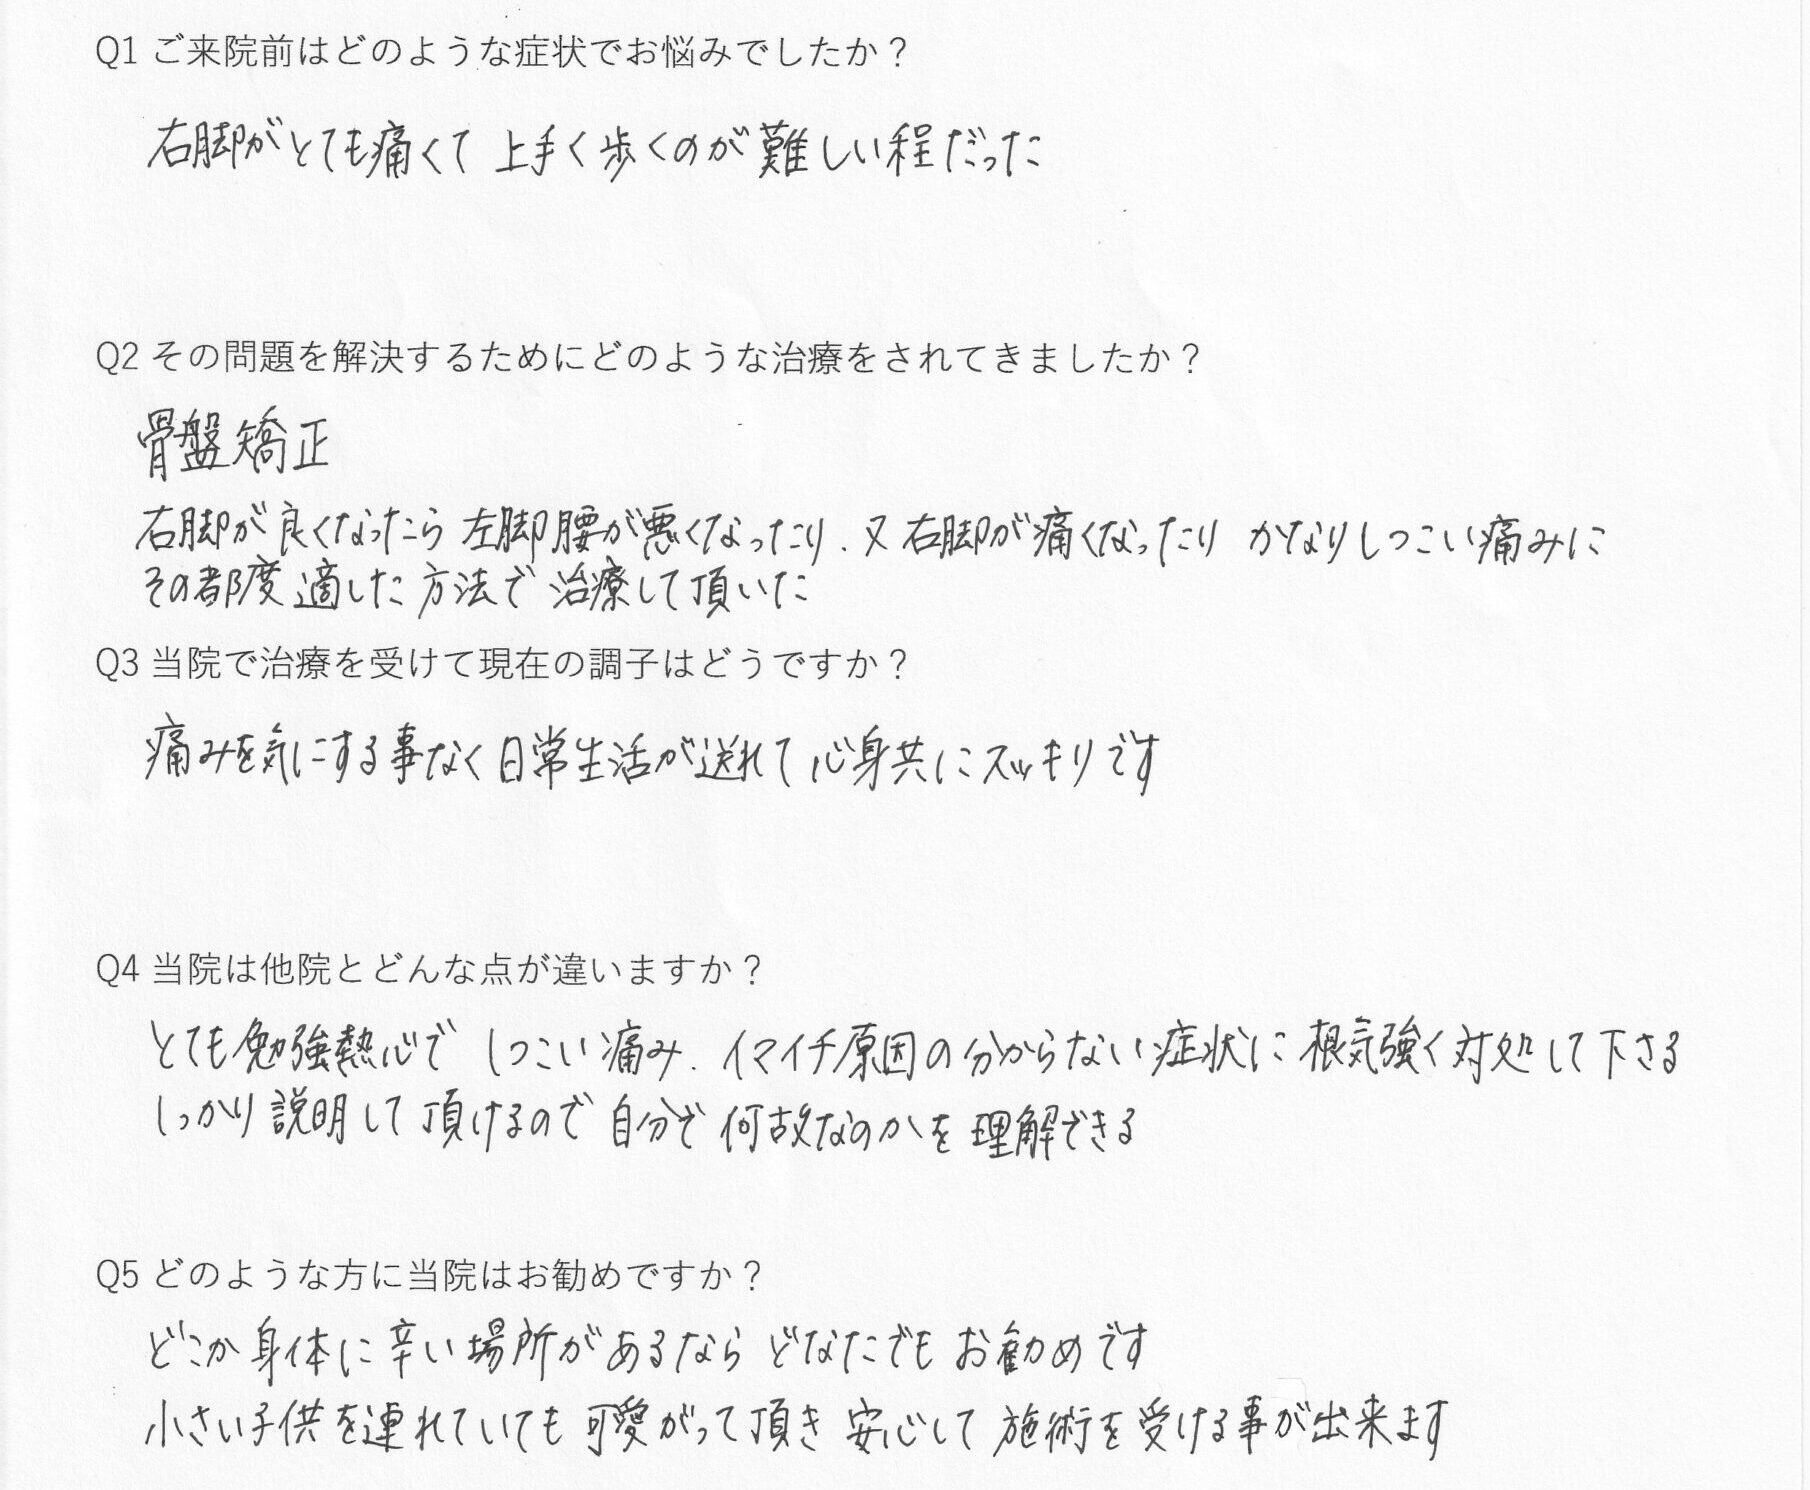 Q1 ご来院前はどのような症状でお悩みでしたか？
右脚がとても痛くて 上手く歩くのが難しい程だった
Q2 その問題を解決するためにどのような治療をされてきましたか？
骨盤矯正
右脚が良くなったら 左脚腰が悪くなったり、又 右脚が痛くなったり かなりしつこい痛みに
その都度 適した方法で治療して頂いた
Q3 当院で治療を受けて現在の調子はどうですか？
痛みを気にする事なく日常生活が送れて 心身共にスッキリです
Q4 当院は他院とどんな点が違いますか？
とても勉強熱心で しつこい痛み、イマイチ原因の分からない症状に 根気強く対処して下さる
しっかり説明して頂けるので 自分で何故なのかを理解できる
Q5 どのような方に当院はお勧めですか？
どこか身体に辛い場所があるなら どなたでも お勧めです
小さい子供を連れていても可愛がって頂き 安心して施術を受ける事が出来ます